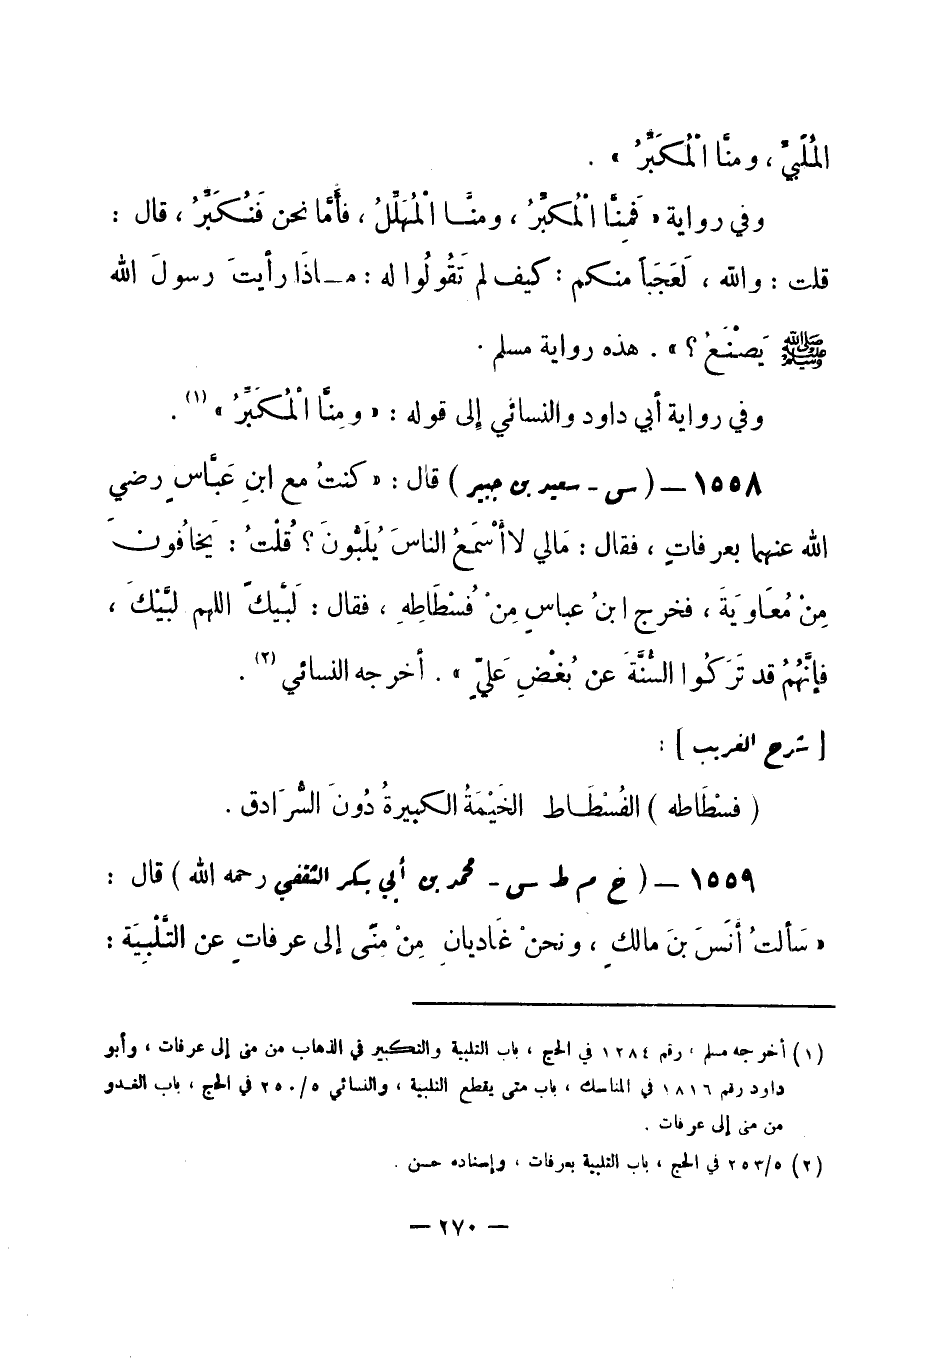 المُلَبِّيُّ ، ومنَّا الْمُكَبِّرُ » .
وفي رواية « فَمِنَّا الْمُكَبِّرُ ، ومنَّا الْمُهَلِّلُ ، فأمَّا نحن فَنُكَبِّرُ ، قال :
قلت : والله ، لَعَجَباً منكم : كيف لم تَقُولُوا له : مـاذَا رأيتَ رسولَ الله
ﷺ يَصْنَعُ ؟ » . هذه رواية مسلم .
وفي رواية أبي داود والنسائي إلى قوله : « ومِنَّا الْمُكَبِّرُ » (١) .
١٥٥٨ — ( س - سعيد بن جبير ) قال : « كنتُ مع ابنِ عَبَّاسٍ رضي
الله عنهما بعرفاتٍ ، فقال : مَالي لا أَسْمَعُ الناسَ يُلَبُّونَ ؟ قُلْتُ : يَخافُونَ
مِنْ مُعَاوِيَةَ ، فخرج ابنُ عباسٍ مِنْ فُسْطَاطِهِ ، فقال : لَبَّيْكَ اللهم لبَّيْكَ ،
فإنَّهُمْ قد تَرَكُوا السُّنَّةَ عن بُغْضِ عَليٍّ » . أخرجه النسائي (٢) .
[ شرح الغريب ] :
( فسْطَاطه ) الفُسْطَـاط الخَيْمَةُ الكبيرةُ دُونَ السُّرَادق .
١٥٥٩ — ( خ م ط س - محمد بن أبي بكر الثقفي رحمه الله ) قال :
« سَألتُ أنَسَ بنَ مالكٍ ، ونحنْ غَاديانِ مِنْ مِنًى إلى عرفاتٍ عن التَّلْبِيَة :
(١) أخرجه مسلم ، رقم ١٢٨٤ في الحج ، باب التلبية والتكبير في الذهاب من منى إلى عرفات ، وأبو
داود رقم ١٨١٦ في المناسك ، باب متى يقطع التلبية ، والنسائي ٥/٢٥٠ في الحج ، باب الغدو
من منى إلى عرفات .
(٢) ٥/٢٥٣ في الحج ، باب التلبية بعرفات ، وإسناده حسن .
— ٢٧٠ —